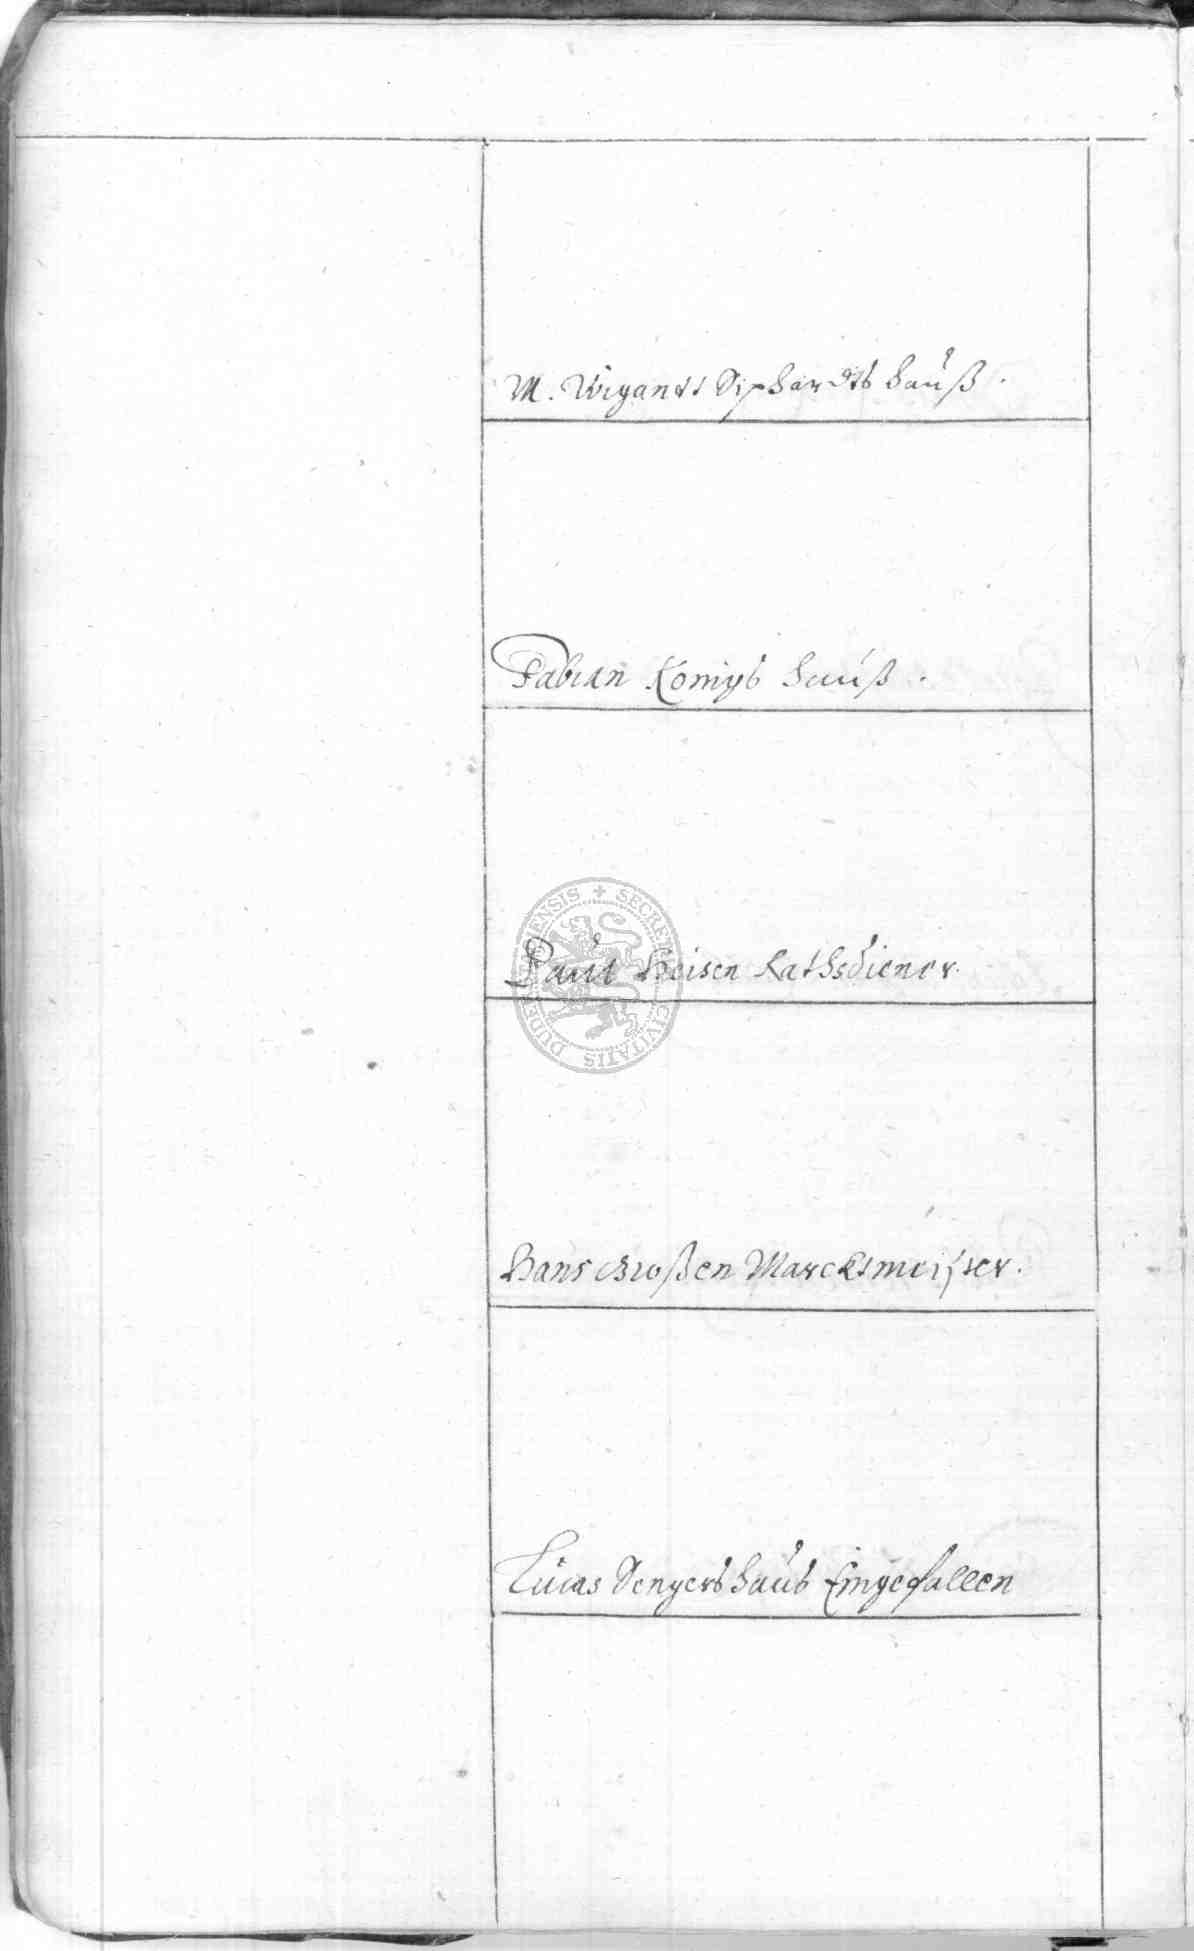 M. Wigandt Siphardts hauß.
Fabian Königs hauß.
Paul Heisen Rathsdiener.
Hans Großen Marcktmeister.
Lucas Sengers hauß Eingefallen
SECRET CIVITATIS DUDE ENSIS